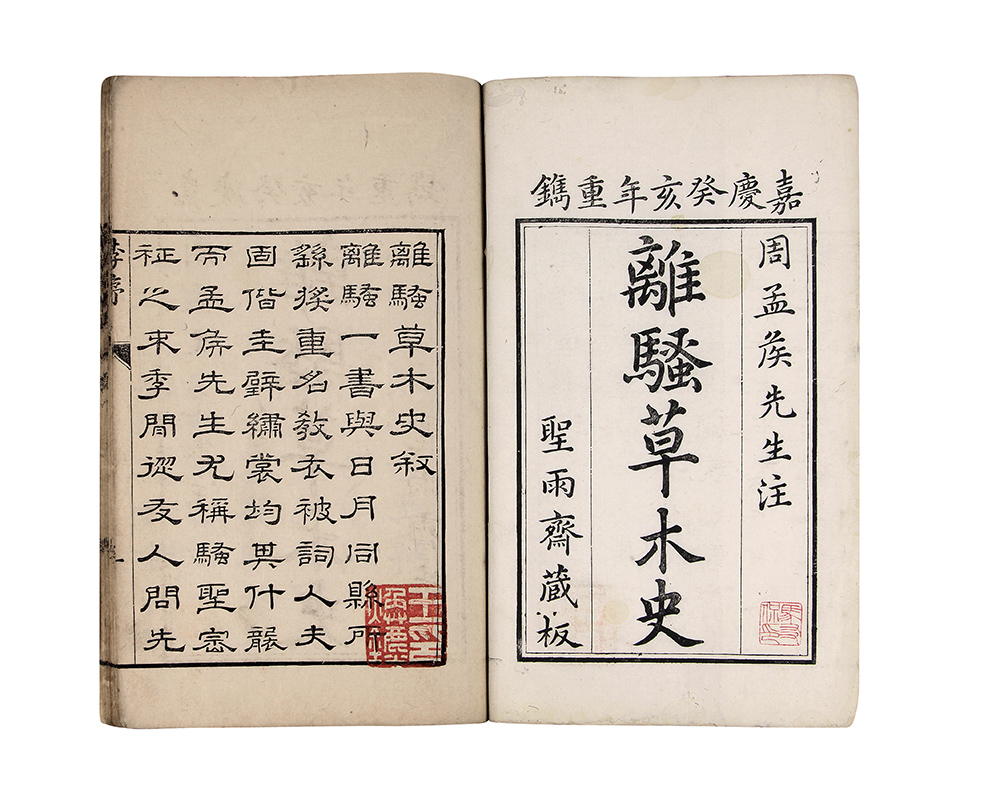 嘉慶癸亥年重鐫
周孟矦先生注
離騷草木史
聖雨齋蔵板
離騷草木史叙
離騷一書與日月同縣所
繇重名教衣被詞人夫
固偕圭璧繡裳均其什襲
而孟矦先生尤稱騷聖密
征之來季間從友人問先
李序
一